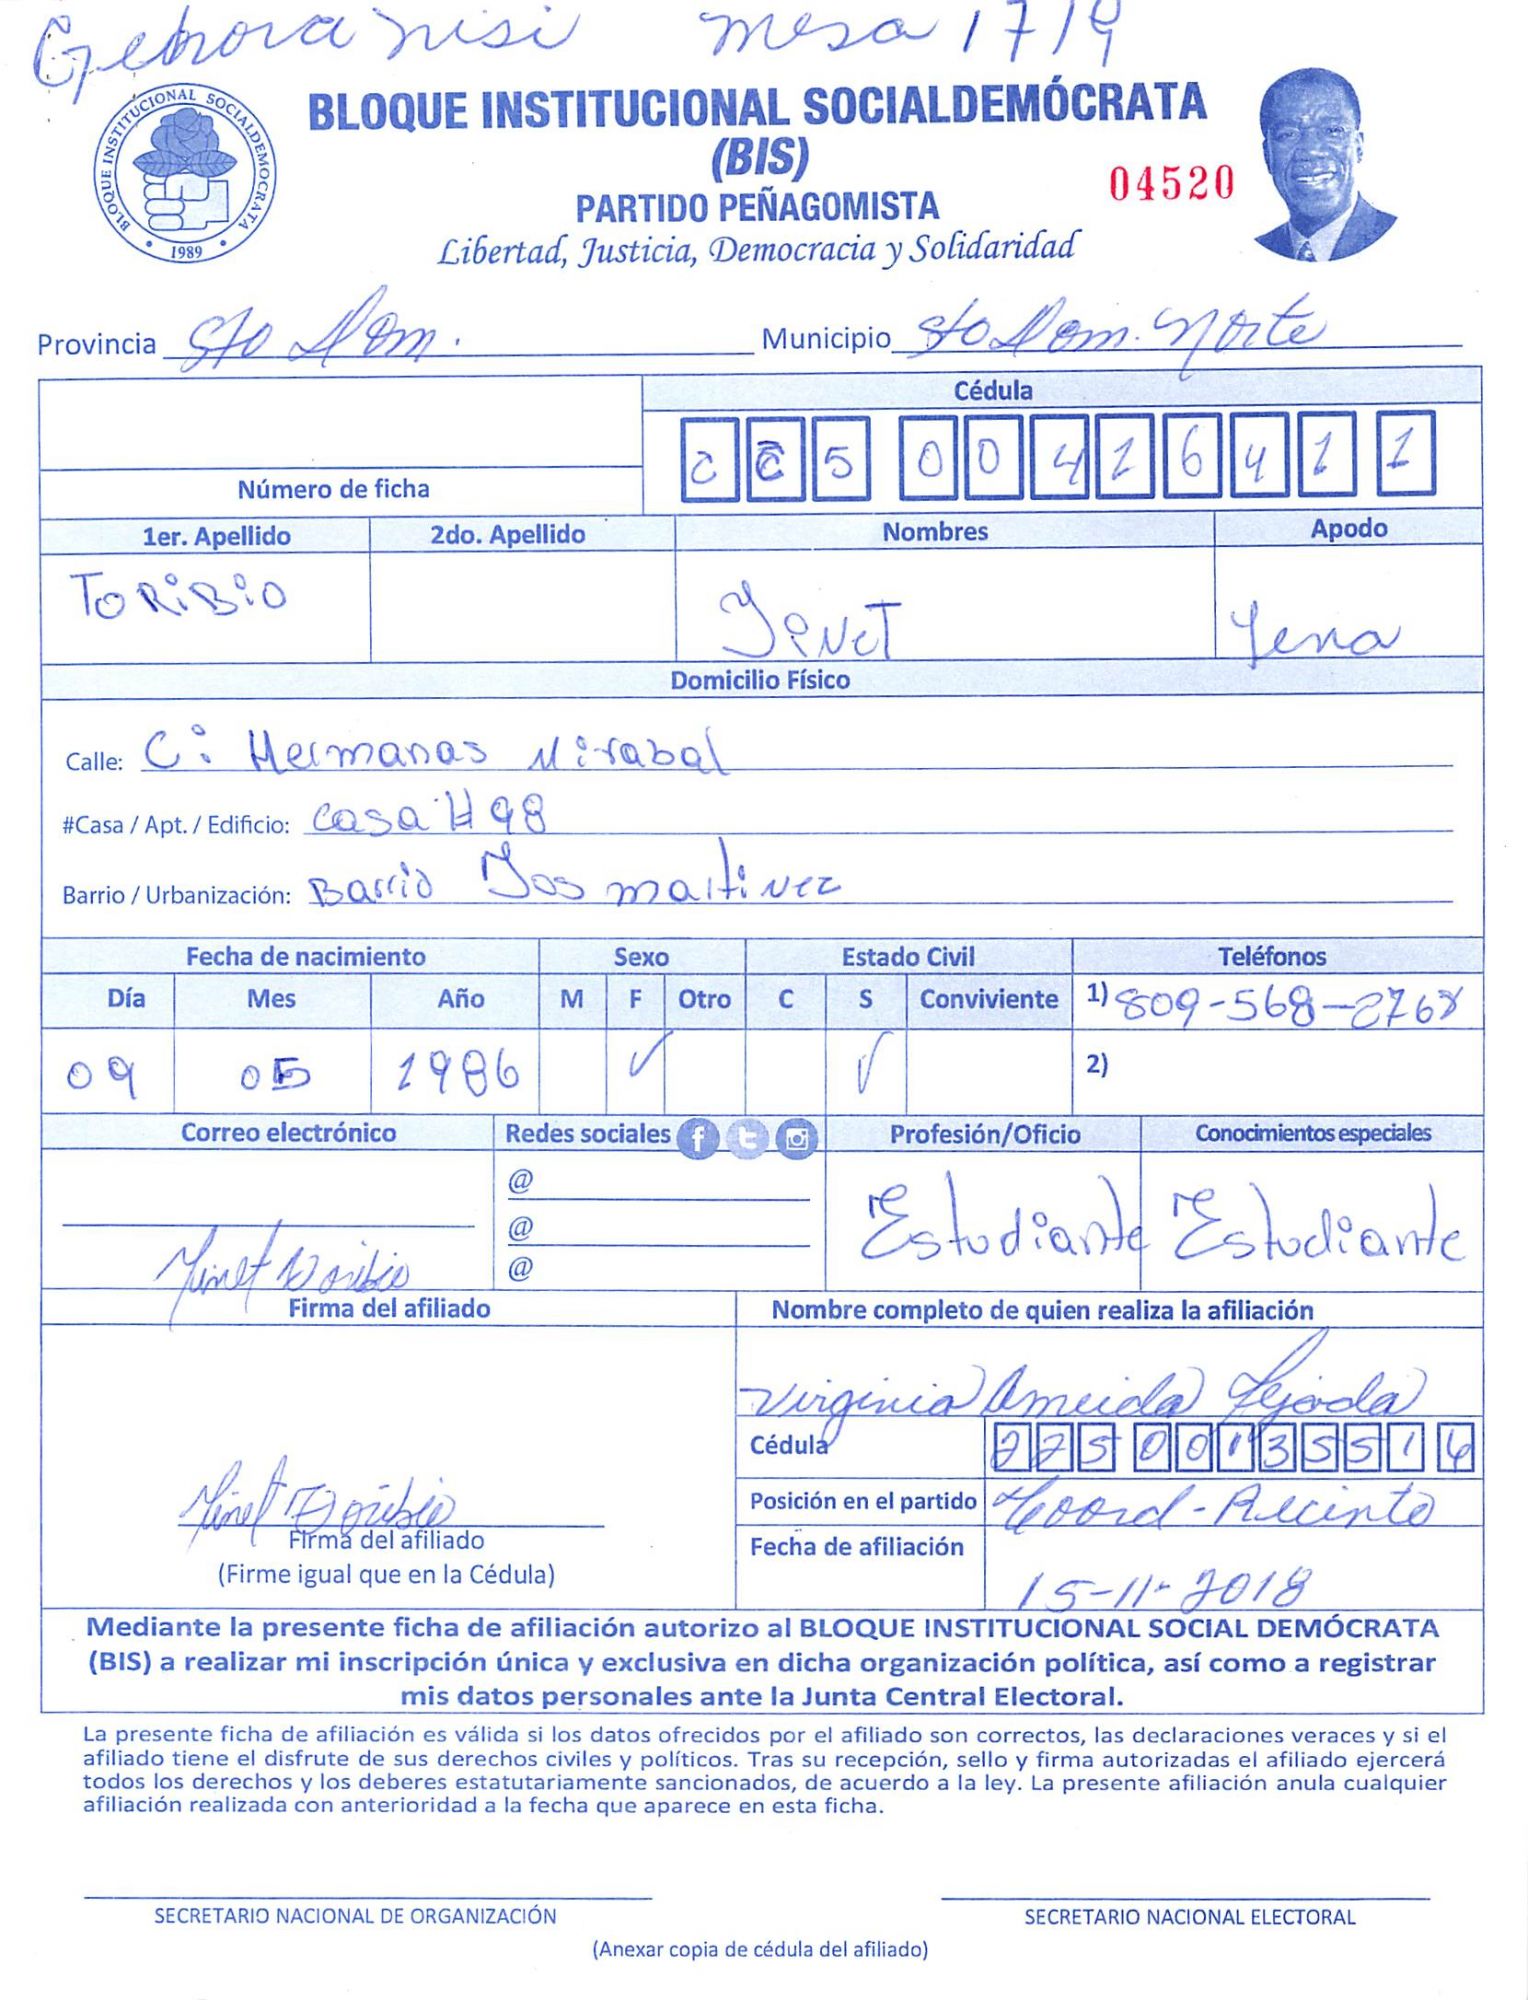 Genova nisi mesa 1719
BLOQUE INSTITUCIONAL SOCIALDEMÓCRATA
BLOQUE INSTITUCIONAL SOCIALDEMOCRATA
1989
(BIS)
04520
PARTIDO PEÑAGOMISTA
Libertad, Justicia, Democracia y Solidaridad
Provincia Sto Dom. Municipio Sto Dom. Norte
Cédula
5 0 0 4 1 6 4 1 1
Número de ficha
1er. Apellido 2do. Apellido Nombres Apodo
TORiBiO Yena
Domicilio Físico
Calle: C: Hermanas Mirabal
#Casa / Apt. / Edificio: casa # 98
Barrio / Urbanización: Barrio Jos martinez
Fecha de nacimiento Sexo Estado Civil Teléfonos
Día Mes Año M F Otro C S Conviviente 1) 809-568-2768
09 05 1986 ✓ ✓ 2)
Correo electrónico Redes sociales Profesión/Oficio Conocimientos especiales
@
@
@
Estudiante Estudiante
Yinet Toribio
Firma del afiliado Nombre completo de quien realiza la afiliación
Virginia Almeida Tejada
Cédula 2 2 5 0 0 1 3 5 5 1 6
Posición en el partido Coord-Recinto
Yinet Toribio
Firma del afiliado
Fecha de afiliación 15-11-2018
(Firme igual que en la Cédula)
Mediante la presente ficha de afiliación autorizo al BLOQUE INSTITUCIONAL SOCIAL DEMÓCRATA
(BIS) a realizar mi inscripción única y exclusiva en dicha organización política, así como a registrar
mis datos personales ante la Junta Central Electoral.
La presente ficha de afiliación es válida si los datos ofrecidos por el afiliado son correctos, las declaraciones veraces y si el
afiliado tiene el disfrute de sus derechos civiles y políticos. Tras su recepción, sello y firma autorizadas el afiliado ejercerá
todos los derechos y los deberes estatutariamente sancionados, de acuerdo a la ley. La presente afiliación anula cualquier
afiliación realizada con anterioridad a la fecha que aparece en esta ficha.
SECRETARIO NACIONAL DE ORGANIZACIÓN SECRETARIO NACIONAL ELECTORAL
(Anexar copia de cédula del afiliado)